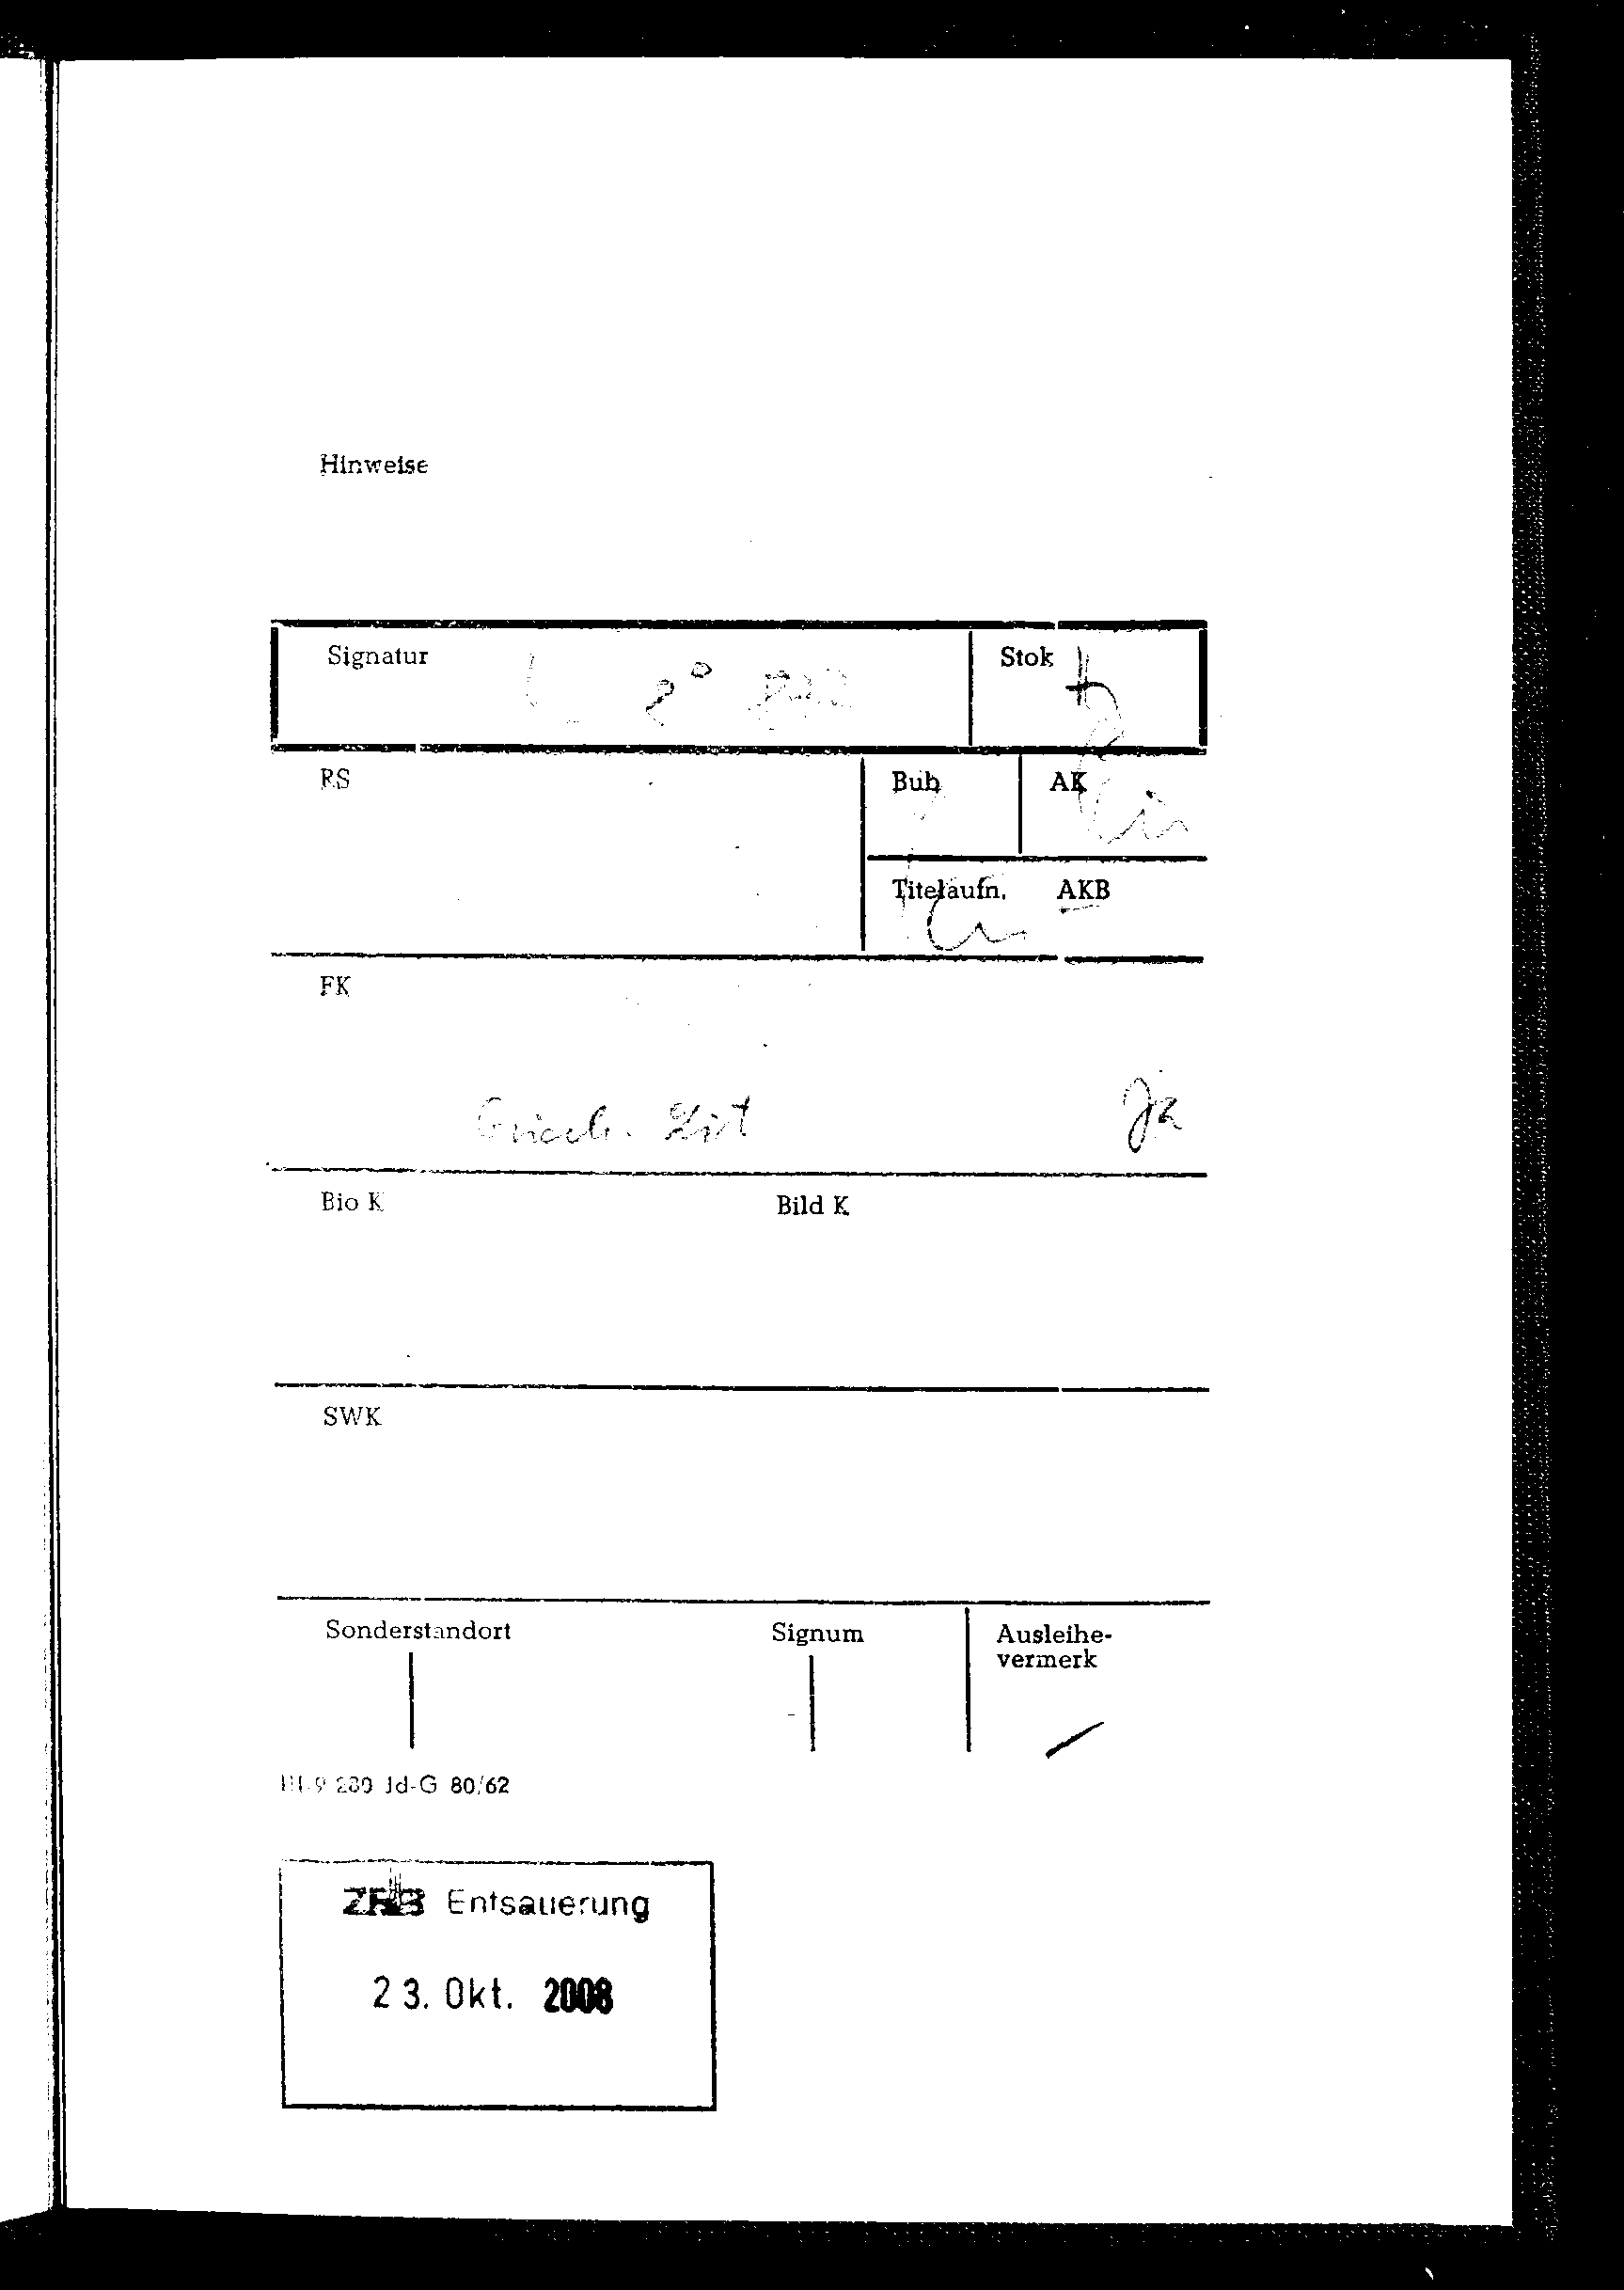 Hinweise
Signatur Stok
2°
RS Bub AK
Titelaufn. AKB
FK
Griech. Lit Ja
Bio K Bild K
SWK
Sonderstandort Signum Ausleihe-
vermerk
280 Jd-G 80/62
Entsauerung
23. Okt. 2008